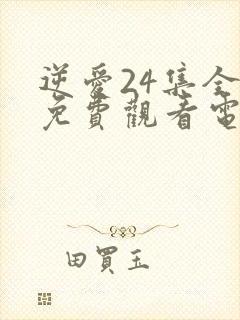 逆愛24集全
免費觀看電
田買玉